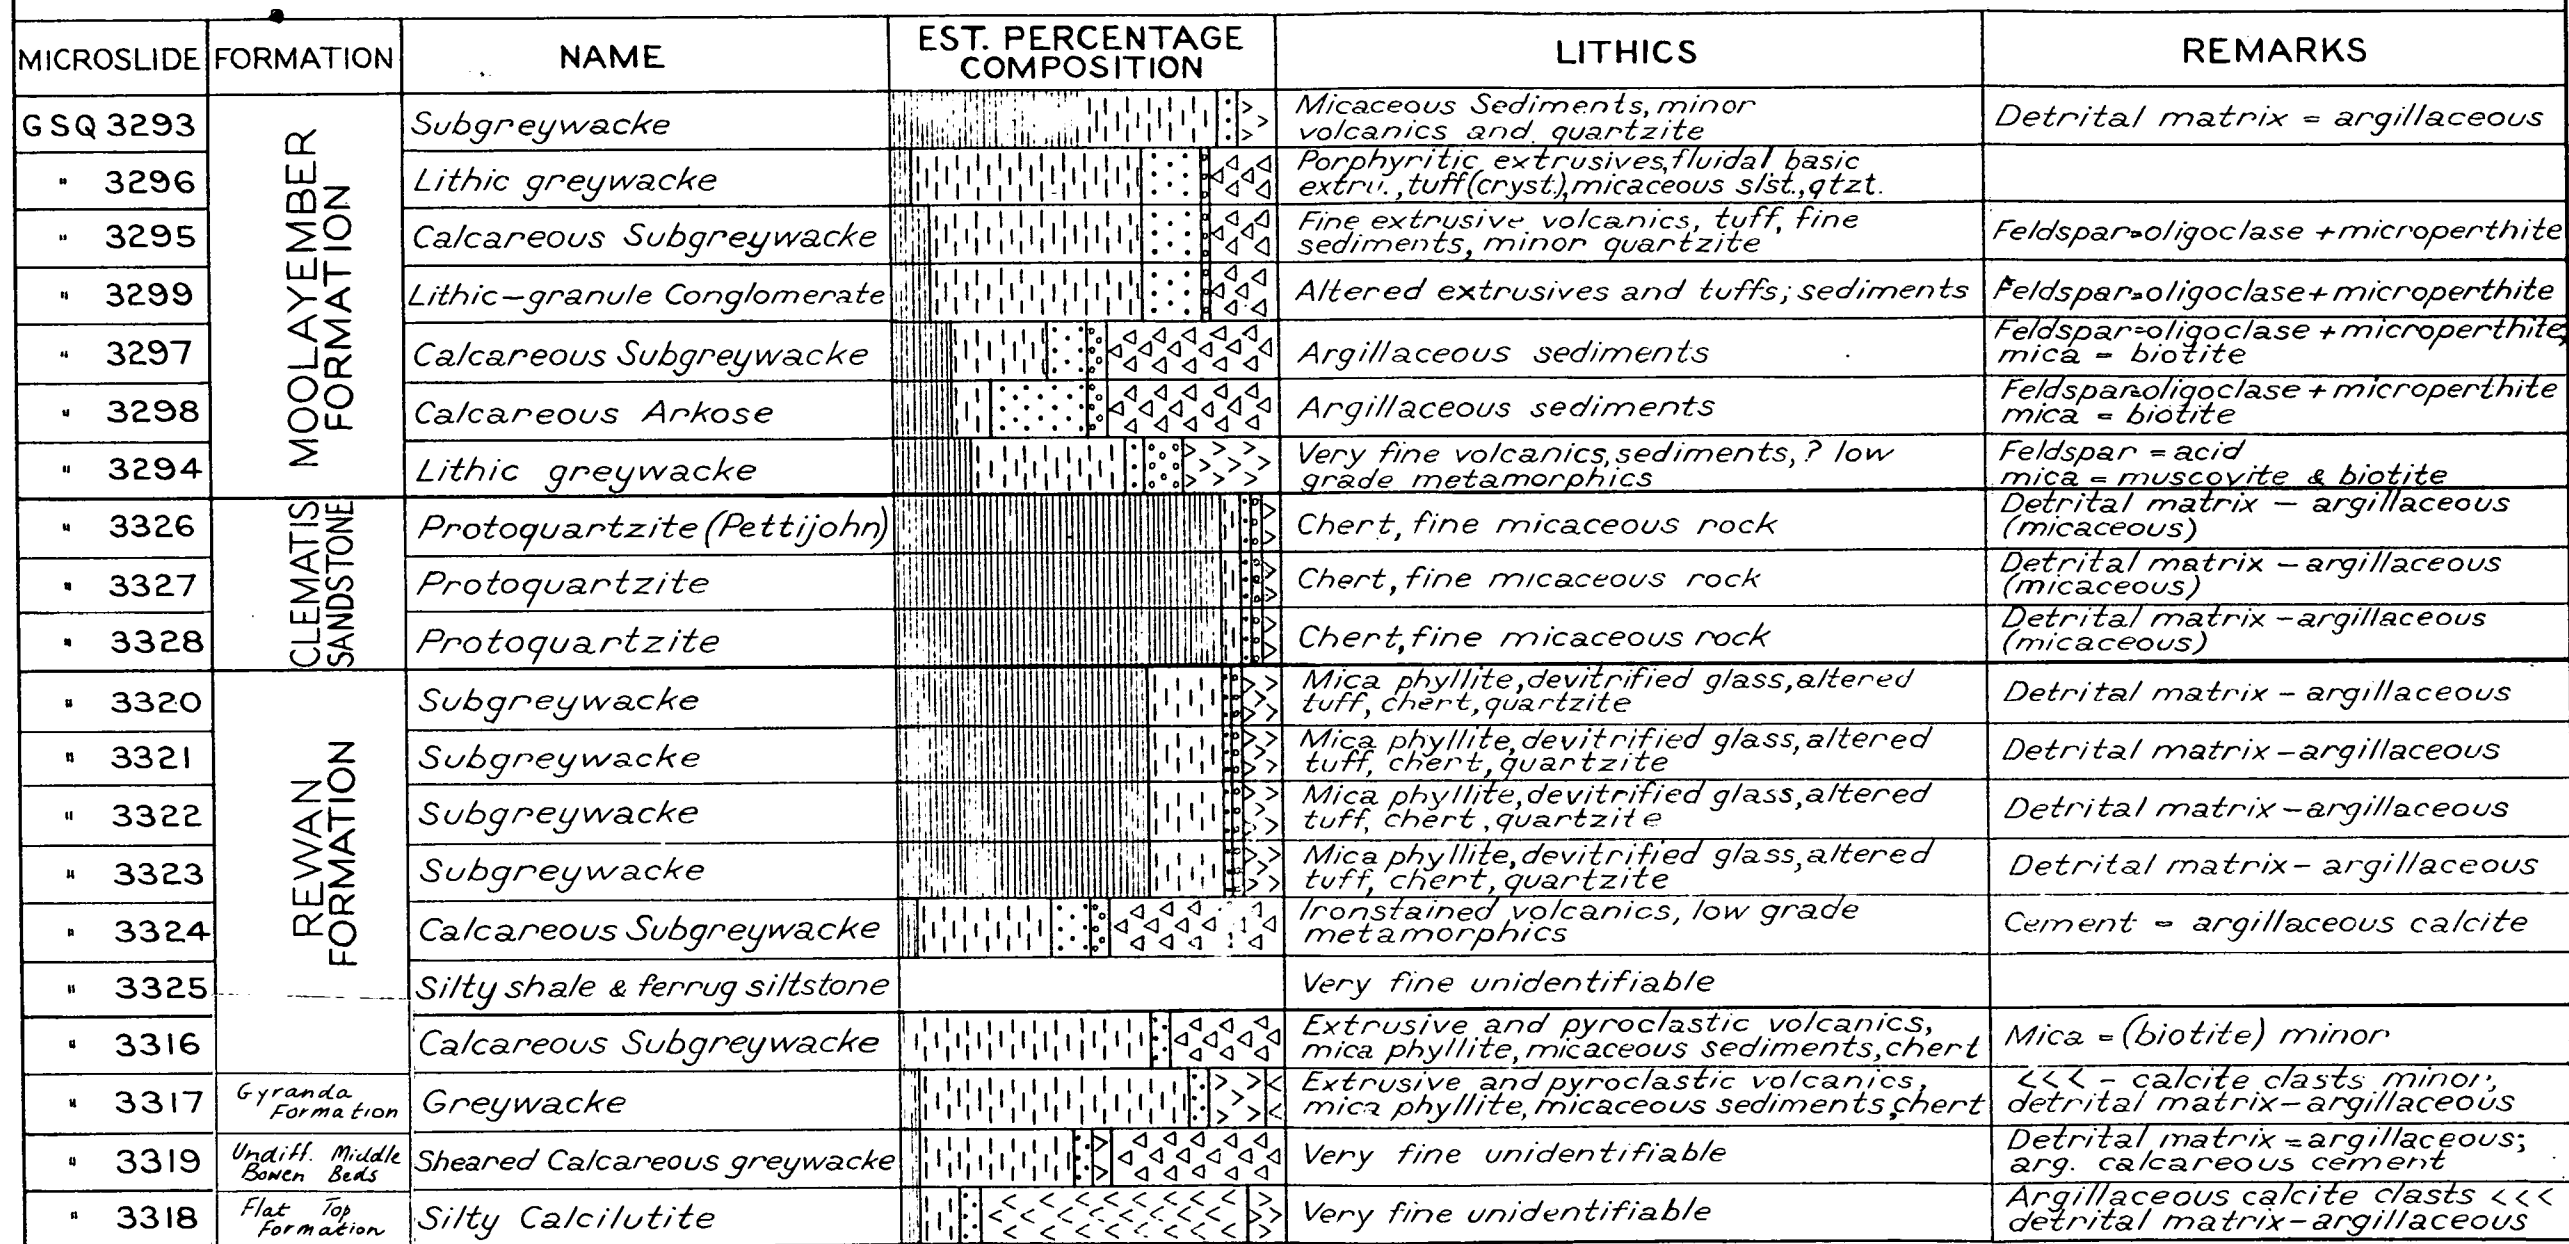 MICROSLIDE FORMATION NAME EST. PERCENTAGE COMPOSITION LITHICS REMARKS
MOOLAYEMBER FORMATION
GSQ 3293 Subgreywacke Micaceous Sediments, minor volcanics and quartzite Detrital matrix = argillaceous
" 3296 Lithic greywacke Porphyritic extrusives, fluidal basic extru., tuff (cryst.), micaceous slst., qtzt.
" 3295 Calcareous Subgreywacke Fine extrusive volcanics, tuff, fine sediments, minor quartzite Feldspar=oligoclase + microperthite
" 3299 Lithic-granule Conglomerate Altered extrusives and tuffs; sediments Feldspar=oligoclase + microperthite
" 3297 Calcareous Subgreywacke Argillaceous sediments Feldspar=oligoclase + microperthite, mica = biotite
" 3298 Calcareous Arkose Argillaceous sediments Feldspar=oligoclase + microperthite mica = biotite
" 3294 Lithic greywacke Very fine volcanics, sediments, ? low grade metamorphics Feldspar = acid mica = muscovite & biotite
CLEMATIS SANDSTONE
" 3326 Protoquartzite (Pettijohn) Chert, fine micaceous rock Detrital matrix – argillaceous (micaceous)
" 3327 Protoquartzite Chert, fine micaceous rock Detrital matrix – argillaceous (micaceous)
" 3328 Protoquartzite Chert, fine micaceous rock Detrital matrix – argillaceous (micaceous)
REWAN FORMATION
" 3320 Subgreywacke Mica phyllite, devitrified glass, altered tuff, chert, quartzite Detrital matrix – argillaceous
" 3321 Subgreywacke Mica phyllite, devitrified glass, altered tuff, chert, quartzite Detrital matrix – argillaceous
" 3322 Subgreywacke Mica phyllite, devitrified glass, altered tuff, chert, quartzite Detrital matrix – argillaceous
" 3323 Subgreywacke Mica phyllite, devitrified glass, altered tuff, chert, quartzite Detrital matrix – argillaceous
" 3324 Calcareous Subgreywacke Ironstained volcanics, low grade metamorphics Cement = argillaceous calcite
" 3325 Silty shale & ferrug siltstone Very fine unidentifiable
" 3316 Calcareous Subgreywacke Extrusive and pyroclastic volcanics, mica phyllite, micaceous sediments, chert Mica = (biotite) minor
" 3317 Gyranda Formation Greywacke Extrusive and pyroclastic volcanics, mica phyllite, micaceous sediments, chert <<< – calcite clasts minor, detrital matrix – argillaceous
" 3319 Undiff. Middle Bowen Beds Sheared Calcareous greywacke Very fine unidentifiable Detrital matrix = argillaceous; arg. calcareous cement
" 3318 Flat Top Formation Silty Calcilutite Very fine unidentifiable Argillaceous calcite clasts <<< detrital matrix – argillaceous